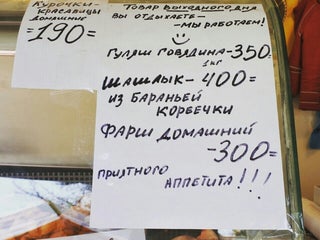 Курочки-
красавицы
домашние
=190=
Товар выходного дня
Вы отдыхаете-
-мы работаем!
Гуляш говядина-350
1кг
Шашлык-400=
из бараньей
корбечки
Фарш домашний
-300=
приятного
аппетита!!!